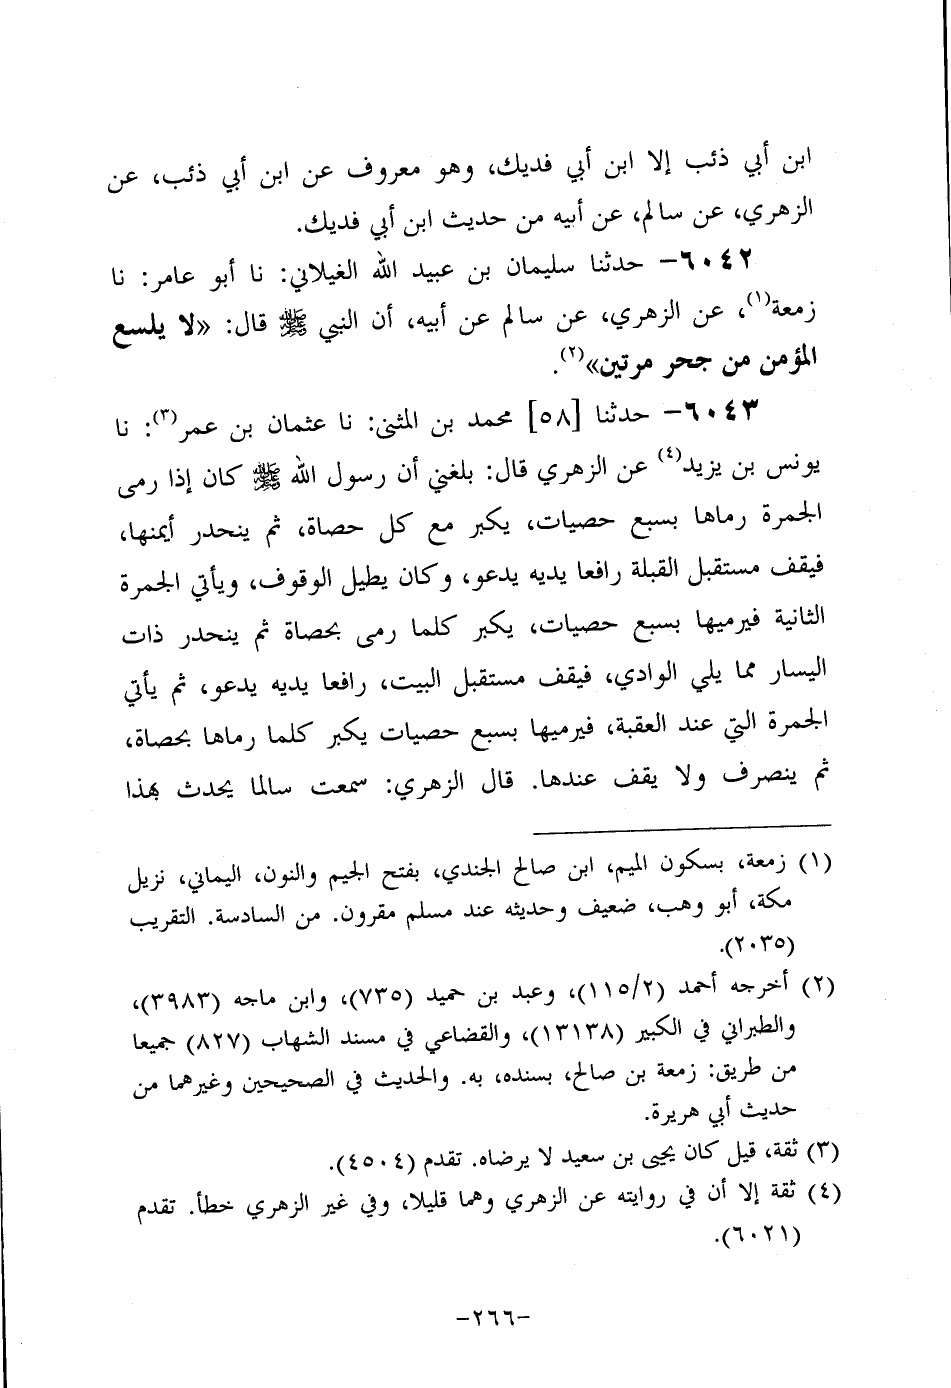 ابن أبي ذئب إلا ابن أبي فديك، وهو معروف عن ابن أبي ذئب، عن
الزهري، عن سالم، عن أبيه من حديث ابن أبي فديك.
٦٠٤٢- حدثنا سليمان بن عبيد الله الغيلاني: نا أبو عامر: نا
زمعة(١)، عن الزهري، عن سالم عن أبيه، أن النبي ﷺ قال: «لا يلسع
المؤمن من جحر مرتين»(٢).
٦٠٤٣- حدثنا [٥٨] محمد بن المثنى: نا عثمان بن عمر(٣): نا
يونس بن يزيد(٤) عن الزهري قال: بلغني أن رسول الله ﷺ كان إذا رمى
الجمرة رماها بسبع حصيات، يكبر مع كل حصاة، ثم ينحدر أيمنها،
فيقف مستقبل القبلة رافعا يديه يدعو، وكان يطيل الوقوف، ويأتي الجمرة
الثانية فيرميها بسبع حصيات، يكبر كلما رمى بحصاة ثم ينحدر ذات
اليسار مما يلي الوادي، فيقف مستقبل البيت، رافعا يديه يدعو، ثم يأتي
الجمرة التي عند العقبة، فيرميها بسبع حصيات يكبر كلما رماها بحصاة،
ثم ينصرف ولا يقف عندها. قال الزهري: سمعت سالما يحدث بهذا
(١) زمعة، بسكون الميم، ابن صالح الجندي، بفتح الجيم والنون، اليماني، نزيل
مكة، أبو وهب، ضعيف وحديثه عند مسلم مقرون. من السادسة. التقريب
(٢٠٣٥).
(٢) أخرجه أحمد (١١٥/٢)، وعبد بن حميد (٧٣٥)، وابن ماجه (٣٩٨٣)،
والطبراني في الكبير (١٣١٣٨)، والقضاعي في مسند الشهاب (٨٢٧) جميعا
من طريق: زمعة بن صالح، بسنده، به. والحديث في الصحيحين وغيرهما من
حديث أبي هريرة.
(٣) ثقة، قيل كان يحيى بن سعيد لا يرضاه. تقدم (٤٥٠٤).
(٤) ثقة إلا أن في روايته عن الزهري وهما قليلا، وفي غير الزهري خطأ. تقدم
(٦٠٢١).
-٢٦٦-